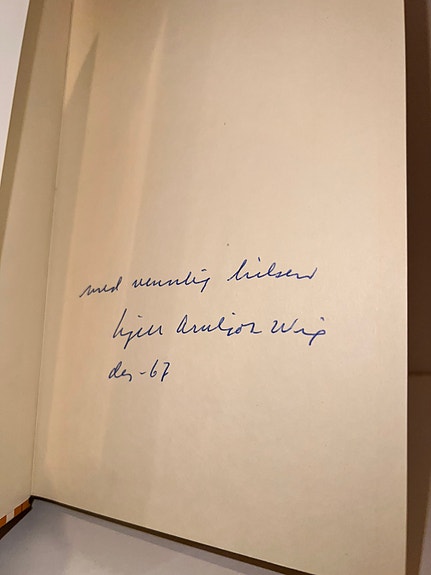 med vennlig hilsen
Kjell Arnljot Wig
des -67